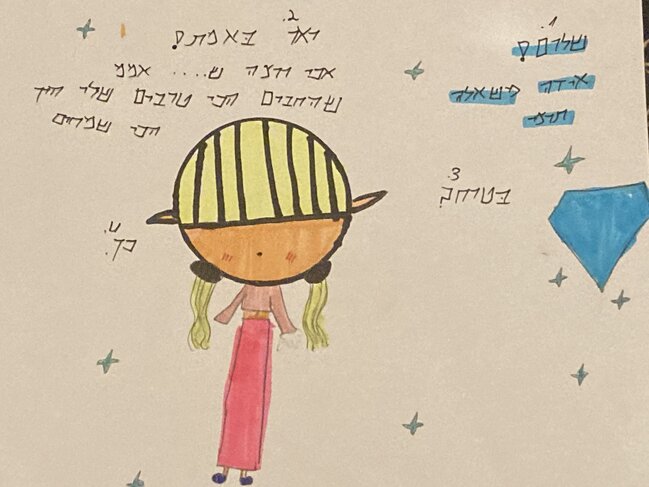 1.
שלום!
איזה משאלה
תרצי
2.
ואו באמת!
אני רוצה ש.... אממ
שהחברים הכי טובים שלי יהיו
הכי שמחים
3.
בטוחה?
4.
כן.